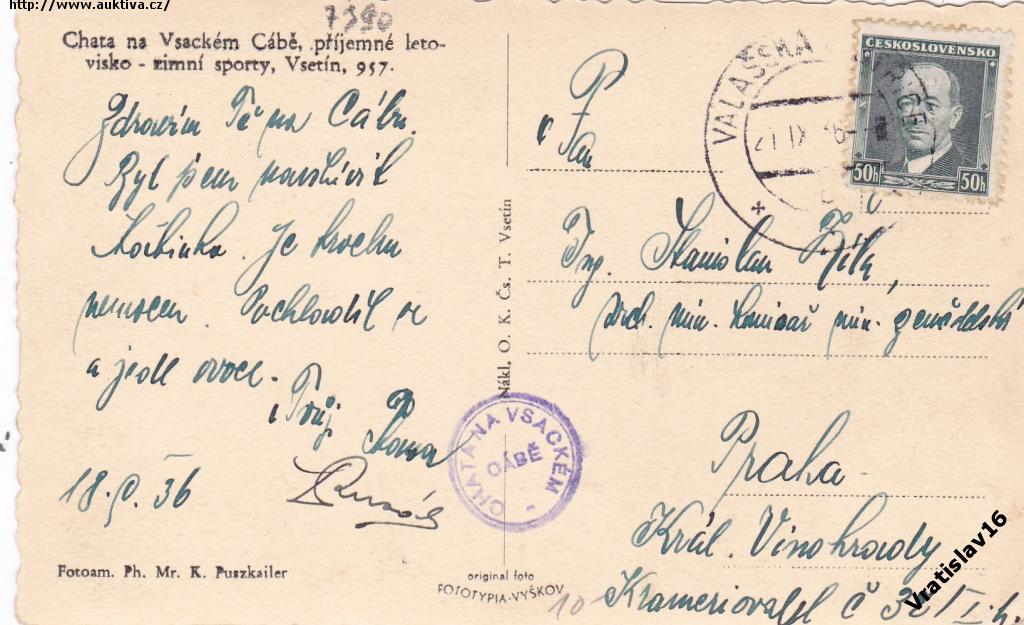 http://www.auktiva.cz/
7390
Chata na Vsackém Cábě, příjemné leto-
visko - zimní sporty, Vsetín, 957.
Zdravím Tě na Cábu.
Byl jsem navštívit
. Je trochu
nemocen. Pochlowdil se
a jedl ovoce.
Tvůj
18. 9. 36
Fotoam. Ph. Mr. K. Puszkailer
Nákl. O. K. Čs. T. Vsetín
CHATA NA VSACKÉM
CÁBĚ
original foto
FOTOTYPIA-VYŠKOV
10
VALAŠSKÁ
21 IX 36
ČESKOSLOVENSKO
50h 50h
Pan
Ing. Stanislav
vrch. min. komisař min. zemědělství
Praha-
Král. Vinohrady
č 32
Vratislav16